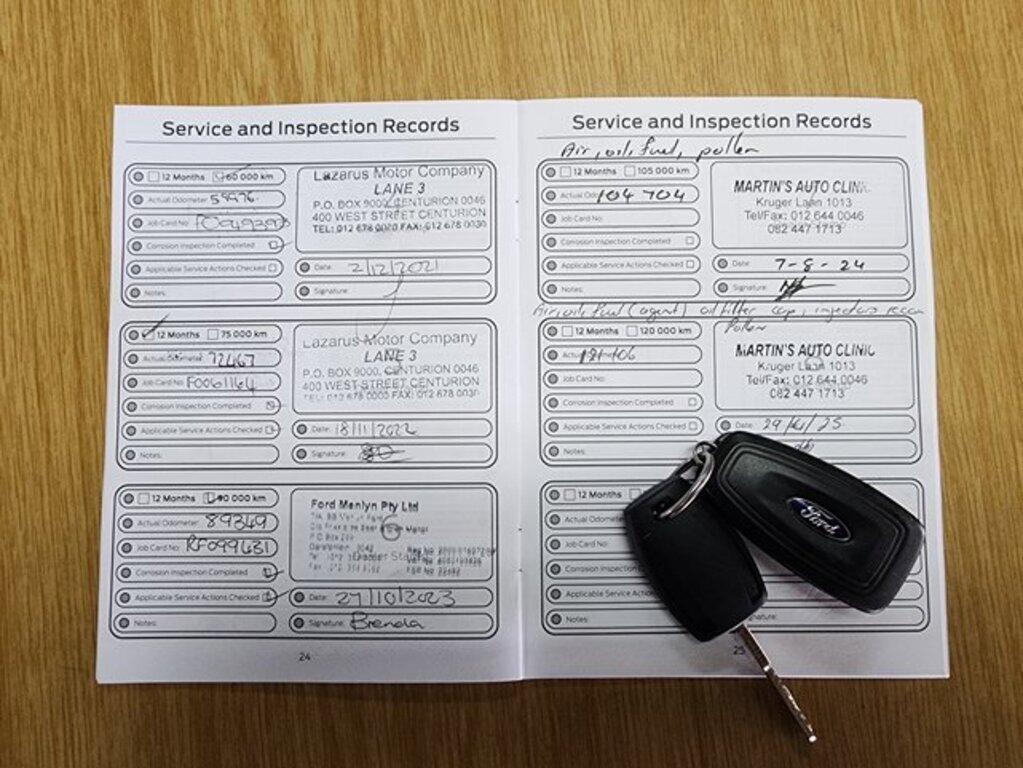 Service and Inspection Records
12 Months 60 000 km
Actual Odometer: 59976
Job Card No:
Corrosion Inspection Completed
Applicable Service Actions Checked
Notes:
Lazarus Motor Company
LANE 3
P.O. BOX 9000, CENTURION 0046
400 WEST STREET CENTURION
TEL: 012 678 0000 FAX: 012 678 0030
Date: 2/12/2021
Signature:
12 Months 75 000 km
Actual Odometer: 72467
Job Card No: F0061164
Corrosion Inspection Completed
Applicable Service Actions Checked
Notes:
Lazarus Motor Company
LANE 3
P.O. BOX 9000, CENTURION 0046
400 WEST STREET CENTURION
TEL: 012 678 0000 FAX: 012 678 0030
Date: 18/11/2022
Signature:
12 Months 90 000 km
Actual Odometer: 89349
Job Card No: RF099631
Corrosion Inspection Completed
Applicable Service Actions Checked
Notes:
Ford Menlyn Pty Ltd
P O Box
Date: 27/10/2023
Signature: Brenda
24
Service and Inspection Records
Air, oil, fuel, pollen
12 Months 105 000 km
Actual Odo 104 704
Job Card No:
Corrosion Inspection Completed
Applicable Service Actions Checked
Notes:
MARTIN'S AUTO CLINIC
Kruger Laan 1013
Tel/Fax: 012 644 0046
082 447 1713
Date: 7-8-24
Signature:
Air, oil, fuel (agent) oil filter cap, injectors recon
Pollen
12 Months 120 000 km
Actual
Job Card No:
Corrosion Inspection Completed
Applicable Service Actions Checked
Notes:
MARTIN'S AUTO CLINIC
Kruger Laan 1013
Tel/Fax: 012 644 0046
082 447 1713
Date: 29/4/25
12 Months
Actual Odome
Job Card No:
Corrosion Inspectio
Applicable Service A
Notes:
Signature:
25
Ford